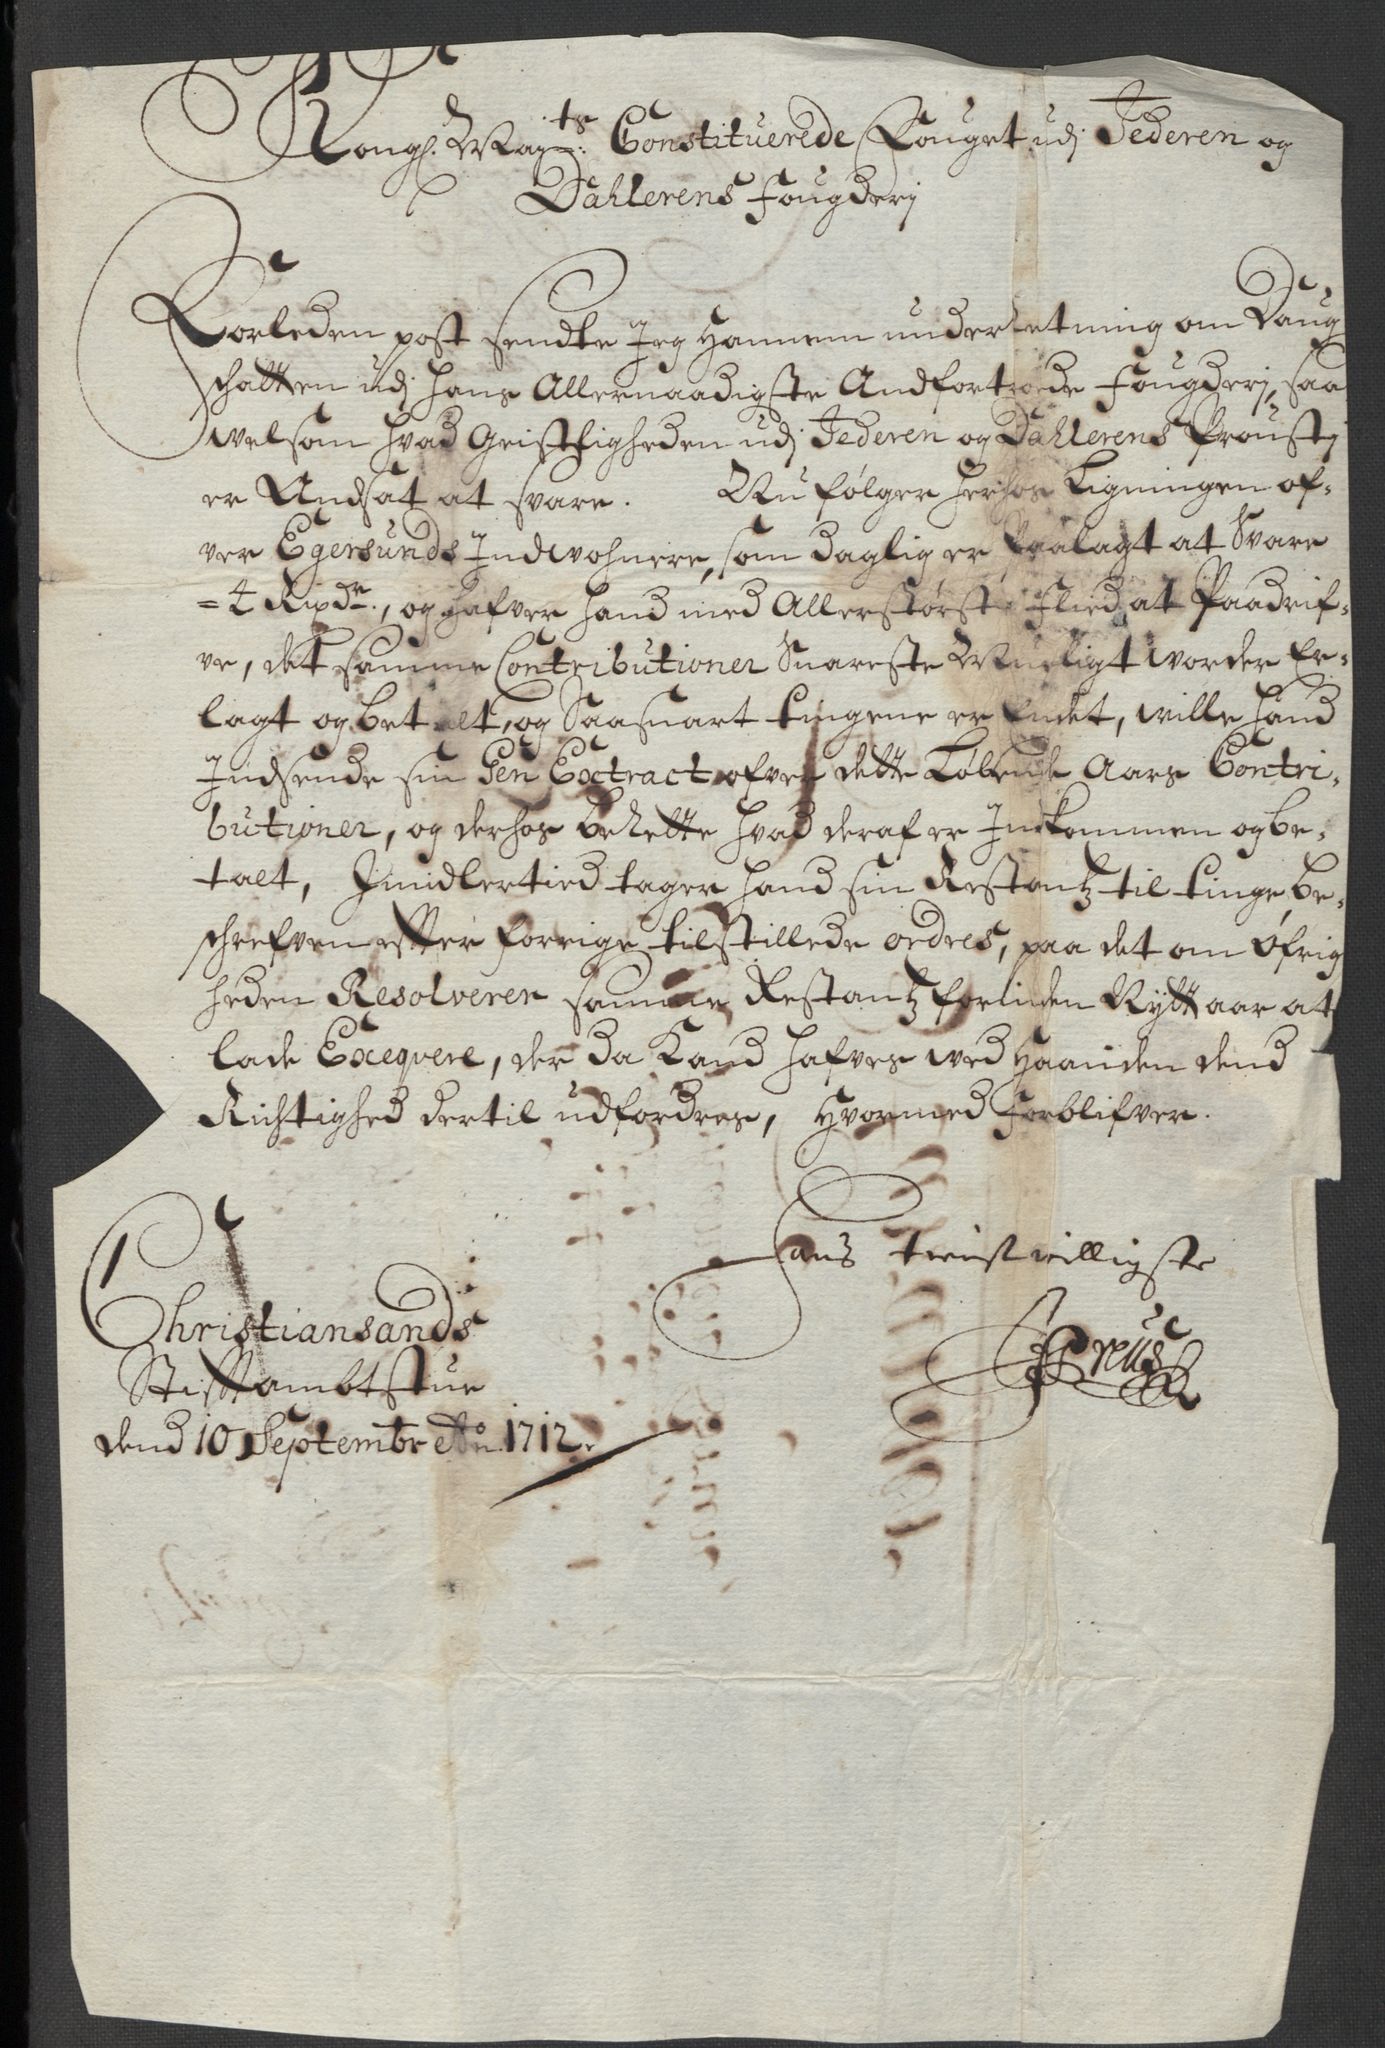 Kongl. Mayts. Constituerede Fouget udj Jederen og
Dahlerens Fougderj
Forleden post sendte Jeg hannem underretning om Daug
schatten udj hans Allernaadigste Andfortroede Fougderj, saa
velsom hvad Geistligheden udj Jederen og Dahlerens Proustj
er Andsat at svare. Nu følger herhos Ligningen of-
ver Egersunds Indvohnere, som daglig er Paalagt at Svare
= 4 Rixdr., og hafver hand med Allerstørste Flied at Paadrif-
ve, det samme Contributioner Snareste Mueligt vorder Er-
lagt og betalt, og Saasnart tingene er Endet, wille hand
Indsende sin Gen Extract ofver dette Løbende Aars Contri-
butioner, og derhos berette hvad deraf er Indkommen og be-
talt, Imidlertied tager hand sin Restantz til tinge be-
schrefven effter forrige tilstillede ordres, paa det om Øfrig
heden Resolverer samme Restantz forinden Nytt aar at
lade Exeqvere, der da Kand hafves ved Haanden dend
Richtighed dertil udfordres, Hvormed Forblifver.
Hans tienstvilligste
Christiansands
Stifftambtstue
dend 10 Septembr Ao. 1712.